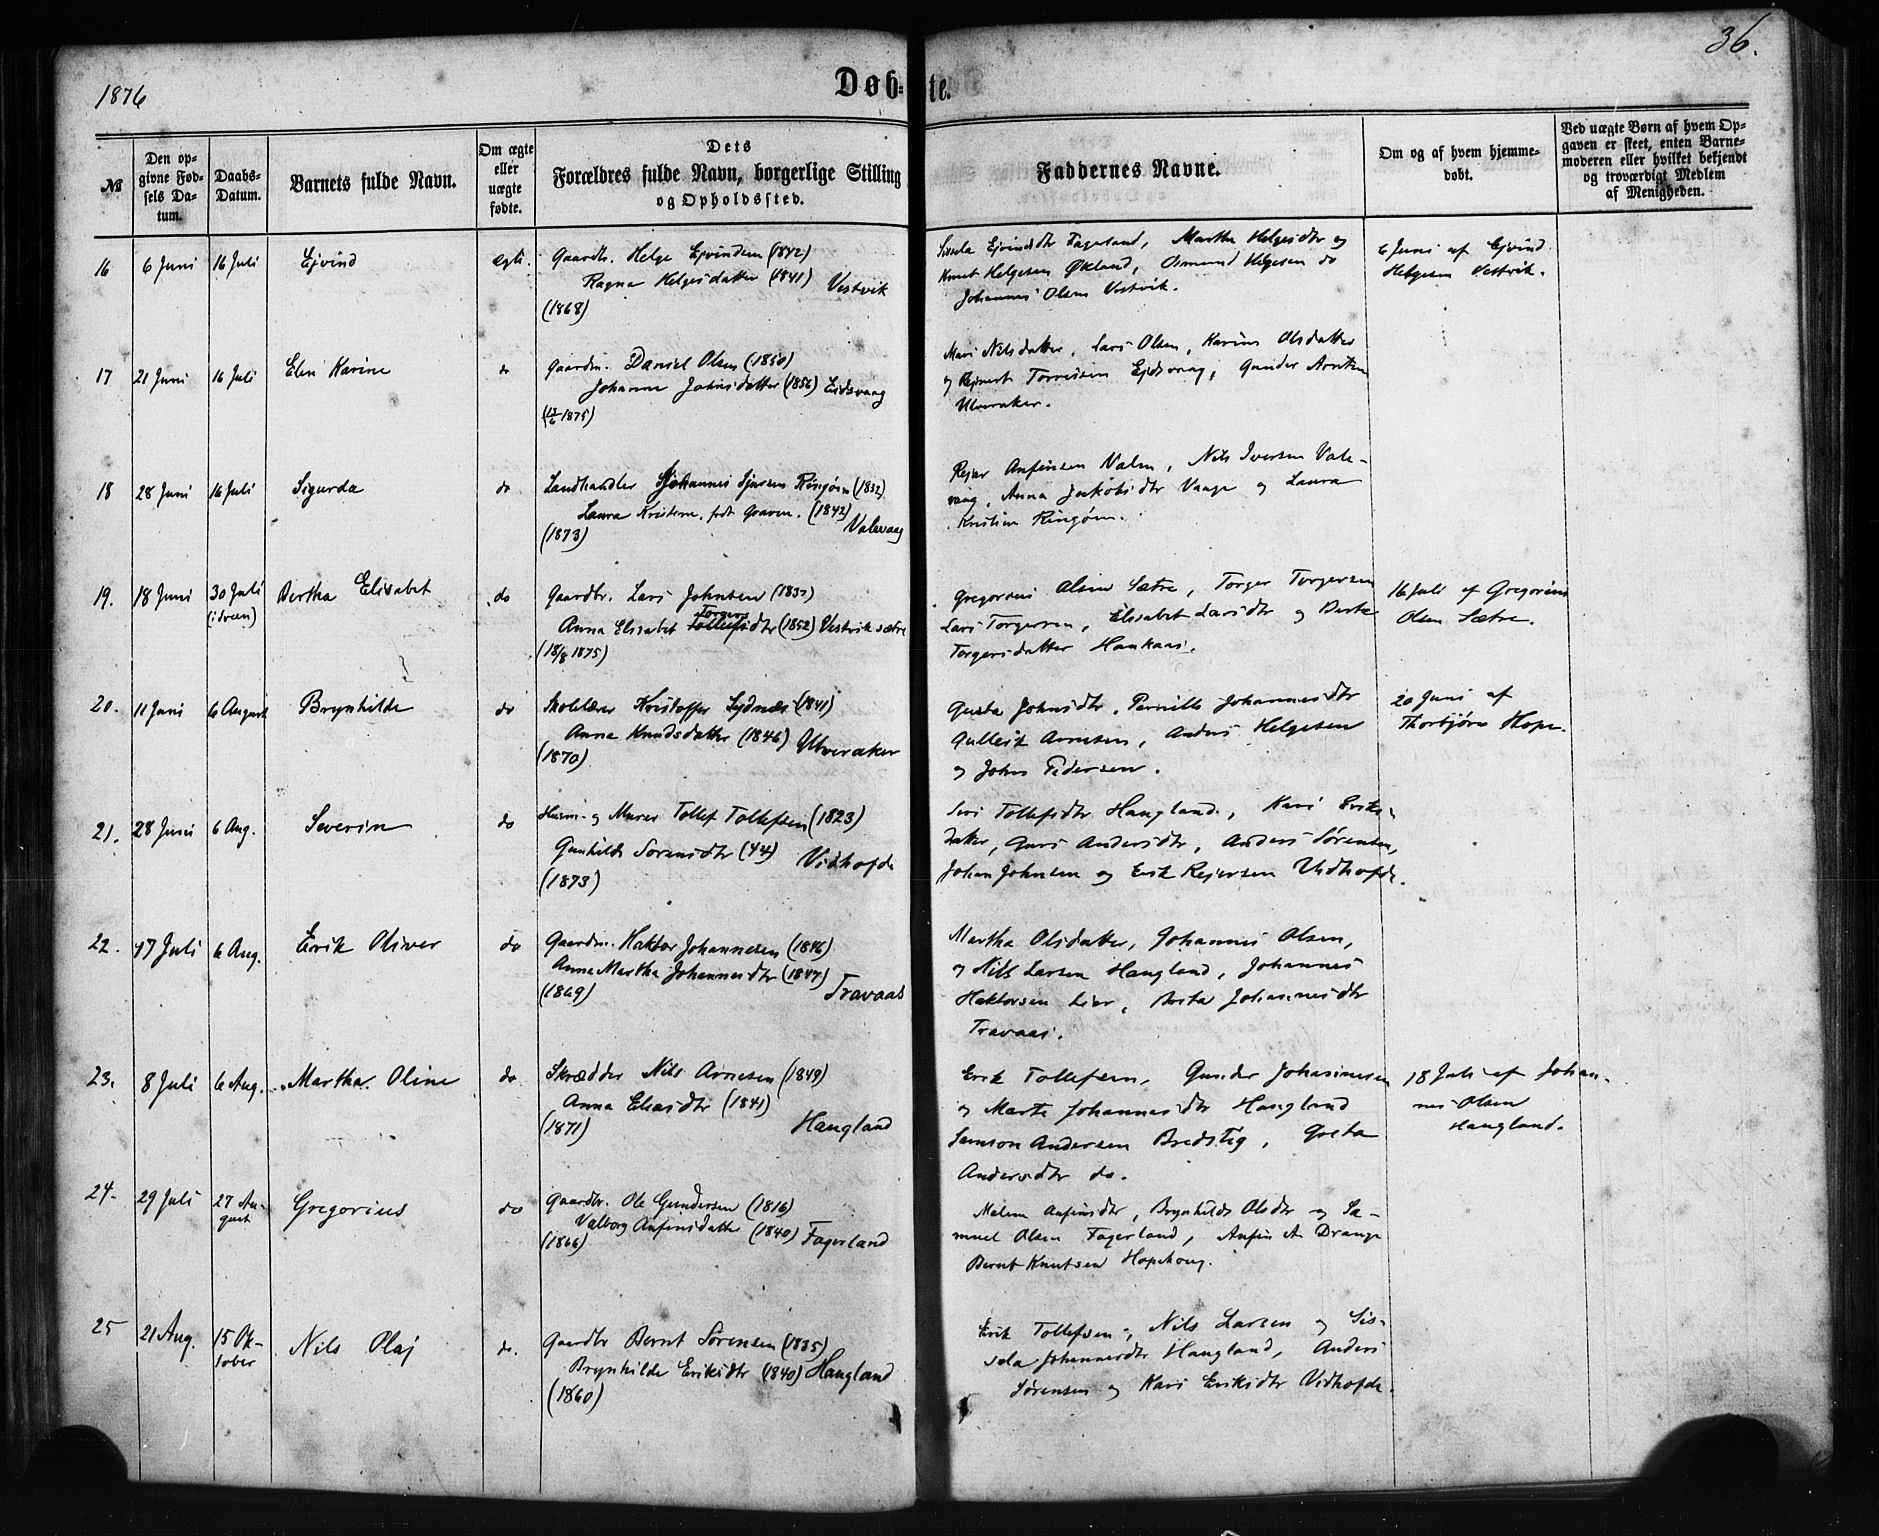 1876
Døb-
te.
36.
№
Den op-
givne Fød-
sels Da-
tum.
Daabs-
Datum.
Barnets fulde Navn.
Om ægte
eller
uægte
fødte.
Dets
Forældres fulde Navn, borgerlige Stilling
og Opholdssted.
Faddernes Navne.
Om og af hvem hjemme-
døbt.
Ved uægte Børn af hvem Op-
gaven er skeet, enten Barne-
moderen eller hvilket bekjendt
og troværdigt Medlem
af Menigheden.
16 6 Juni 16 Juli Ejvind ægte.
Gaardbr. Helge Ejvindsen (1842)
Ragna Helgesdatter (1841) Vestvik
(1868)
Sissela Ejvindsdtr Fagerland, Martha Helgesdtr og
Knut Helgesen Økland, Osmund Helgesen do
Johannes Olsen Vestvik.
6 Juni af Ejvind
Helgesen Vestvik.
17 21 Juni 16 Juli Elen Karine do
Gaardm. Daniel Olsen (1850)
Johanne Johnsdatter (1856) Eidsvaag
(18/6 1875)
Mari Nilsdatter, Lars Olsen, Karina Olsdatter
og Rejnert Torresen Ejdsvaag, Gunder Arntsen
Utveraker.
18 28 Juni 16 Juli Sigurda do
Landhandler Johannes Sjursen Ringøen (1832)
Laura Kristine, født Graven. (1842)
(1873) Valevaag
Rejar Anfinsen Valen, Nils Iversen Vale-
vaag, Anna Jakobsdtr Vaage og Laura
Kristine Ringøen.
19. 18 Juni 30 Juli Bertha Elisabet do
Gaardbr. Lars Johnsen (1837)
Torgers
Anna Elisabet Tollefsdtr (1852) Vestvik sætre
(18/8 1875)
Gregorius Olsen Sætre, Torger Torgersen
Lars Torgersen, Elisabet Larsdtr og Berta
Torgersdatter Haukaas.
16 Juli af Gregorius
Olsen Sætre.
20. 11 Juni 6 August Brynhilde do
Skolelærer Kristoffer Sydnæs (1841)
Anna Knudsdatter (1846) Utveraker
(1870)
Gusta Johnsdtr, Pernille Johannesdtr
Gulleik Arnesen, Anders Helgesen
og John Pedersen.
20 Juni af
Thorbjørn Hope.
21. 28 Juni 6 Aug. Severin do
Husm- og Murer Tollef Tollefsen (1823)
Gunhilde Sørensdtr (44) Vidhofde
(1873)
Siri Tollefsdtr Haugland, Kari Eriks-
datter, Guri Andersdtr, Anders Sørensen,
Johan Johnsen og Erik Rejersen Vidhofde.
22. 17 Juli 6 Aug. Erik Oliver do
Gaardm. Haktor Johannesen (1846)
Anna Martha Johannesdtr (1847)
(1869) Travaas
Martha Olsdatter, Johannes Olsen,
og Nils Larsen Haugland, Johannes
Haktorsen Lier, Brita Johannesdtr
Travaas.
23. 8 Juli 6 Aug. Martha Oline do
Skrædder Nils Arnesen (1849)
Anna Eliasdtr (1841)
(1871) Haugland
Erik Tollefsen, Gunder Johannesen
og Marta Johannesdtr Haugland
Samson Andersen Bredstig, Greta
Andersdtr do.
18 Juli af Johan-
nes Olsen
Haugland.
24. 29 Juli 27 Au-
gust Gregorius do
Gaardbr. Ole Gundersen (1816)
Valborg Anfinsdatter (1840) Fagerland
(1866)
Malene Anfinsdtr, Brynhilde Olsdtr og Sa-
muel Olsen Fagerland, Anfin A. Drange
Bernt Knutsen Hopehaug.
25 21 Aug. 15 Ok-
tober Nils Olaj do.
Gaardbr Bernt Sørensen (1835)
Brynhilde Eriksdtr (1840) Haugland
(1860)
Erik Tollefsen, Nils Larsen og Sis-
sela Johannesdtr Haugland, Anders
Sørensen og Kari Eriksdtr Vidhofde.